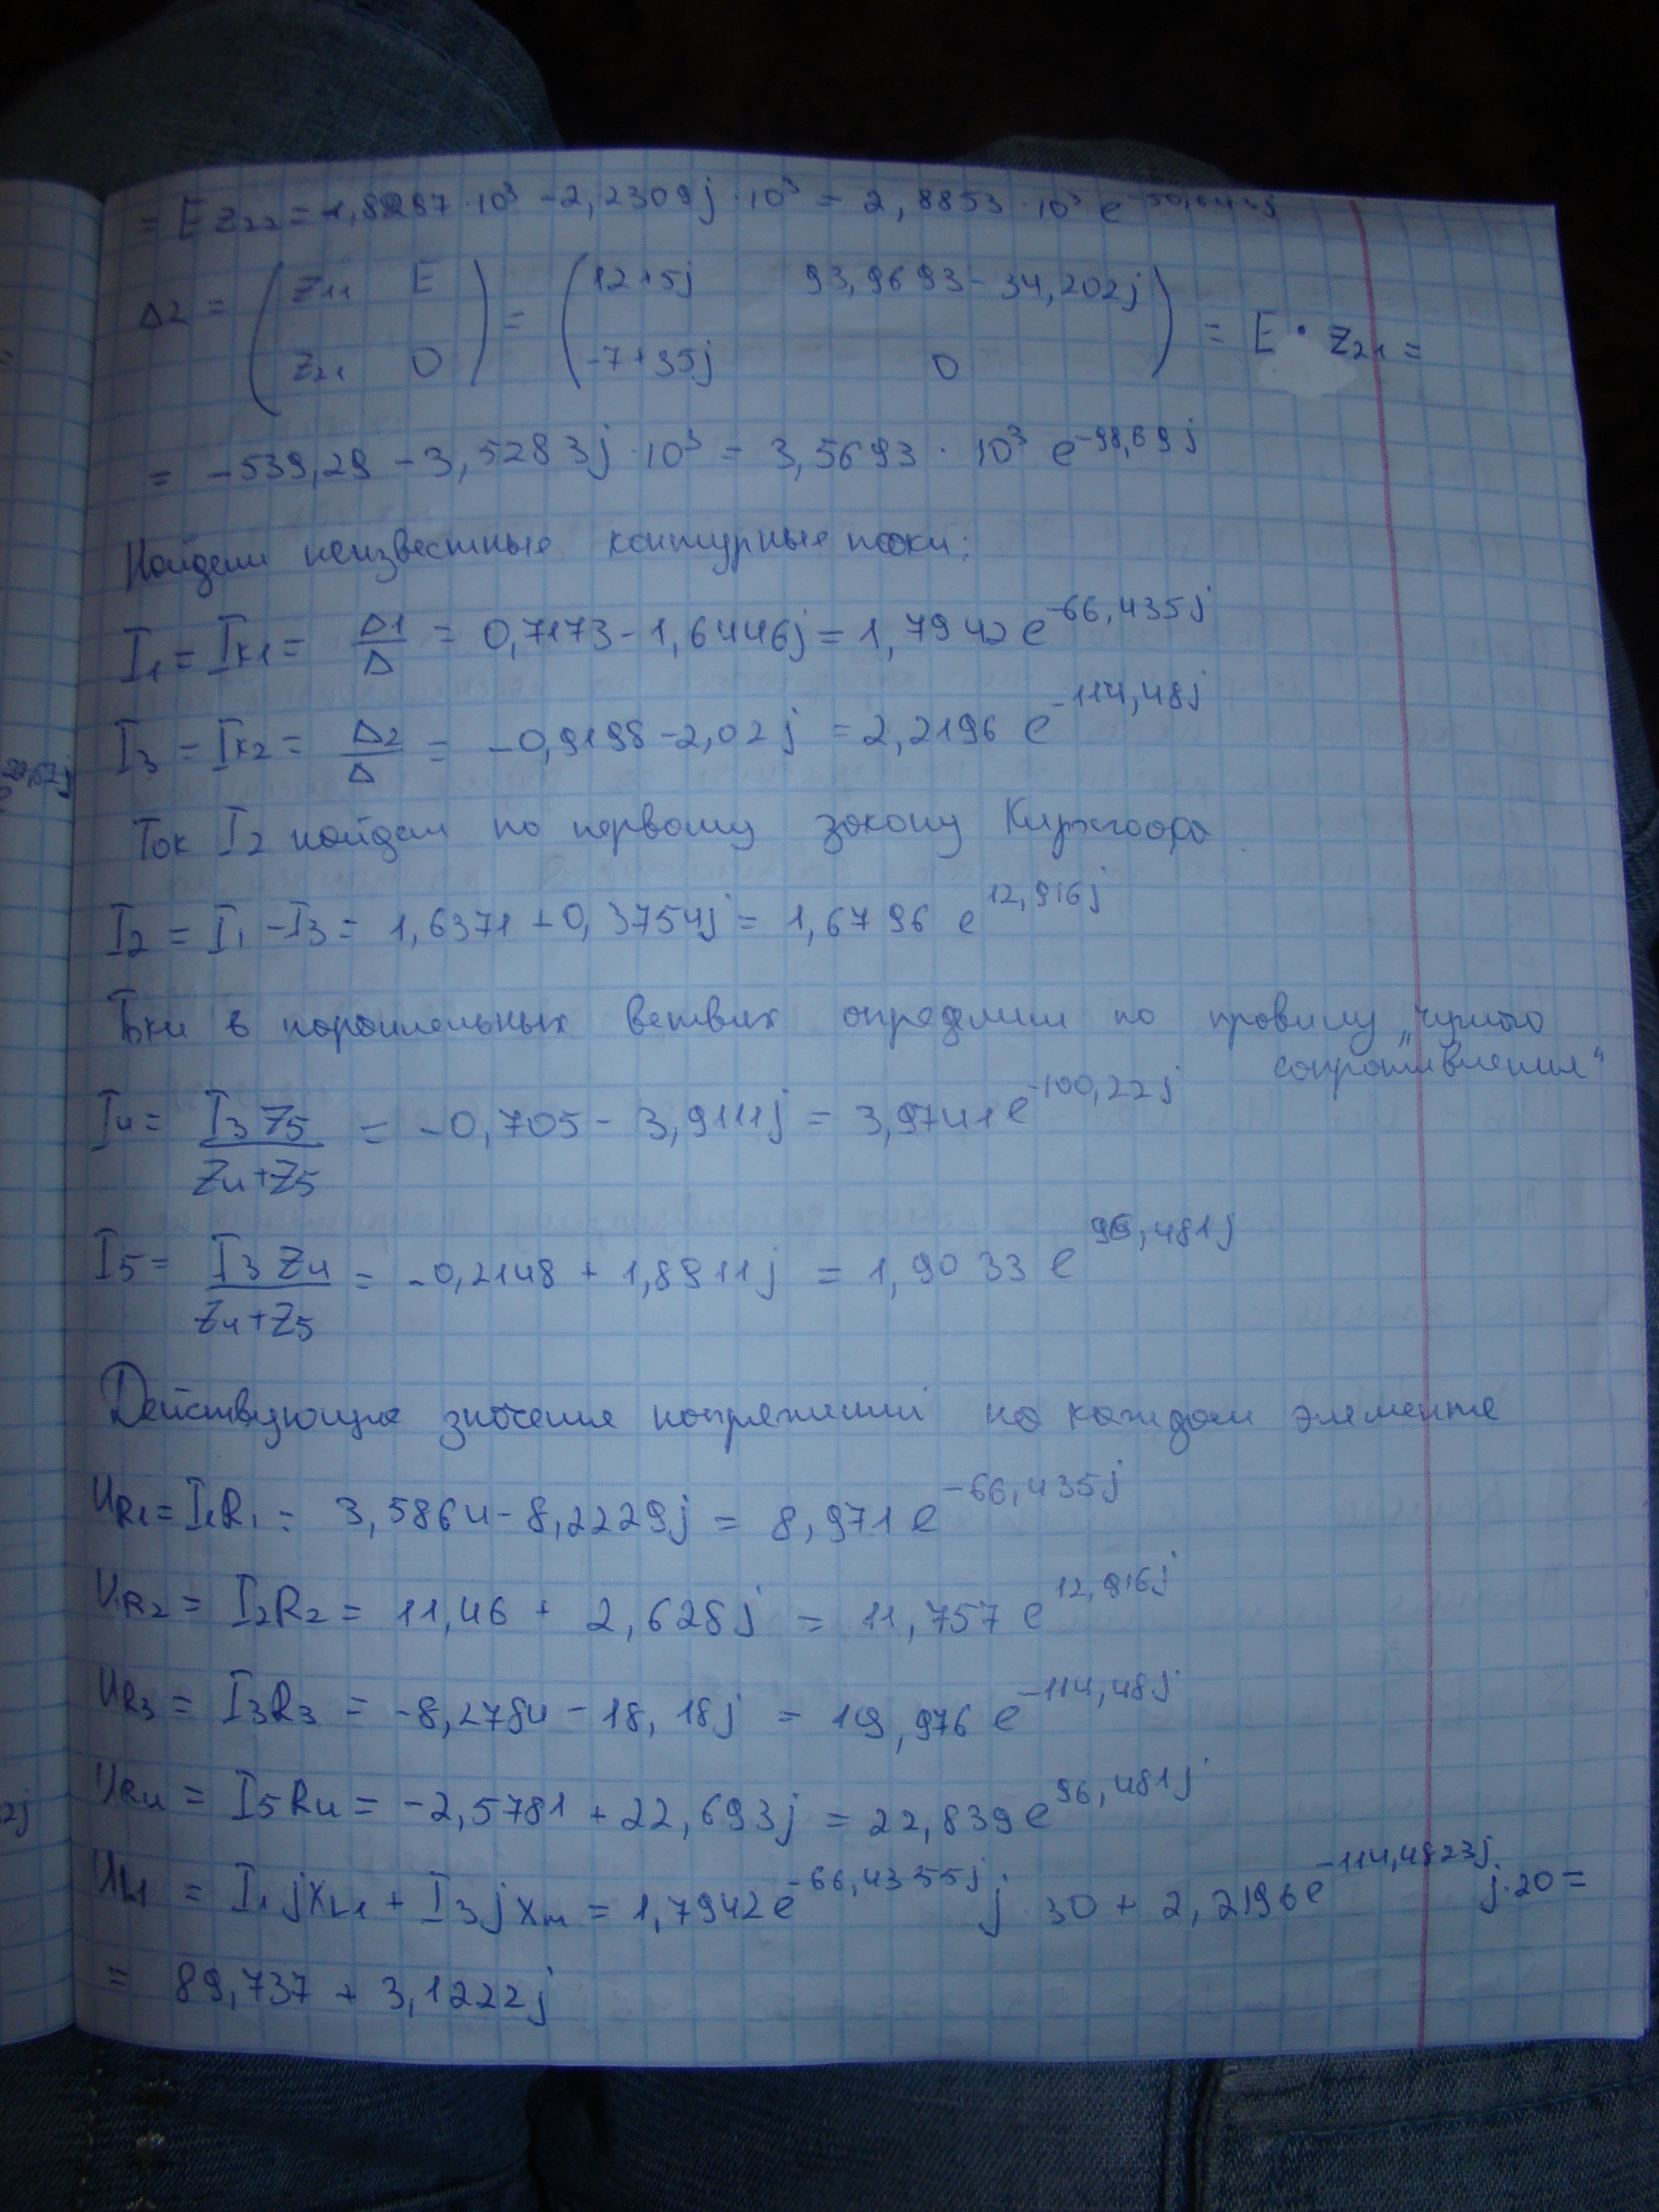 = E z22 = 1,8297·10³ − 2,2309j·10³ = 2,8853·10³ e
Δ2 = ( z11 E ) = ( 12+5j 93,9693 − 34,202j ) = E · z21 =
( z21 0 ) ( -7+35j 0 )
= −539,29 − 3,5283j·10³ = 3,5693 · 10³ e^-98,69j
Найдем неизвестные контурные токи:
I1 = Iк1 = Δ1/Δ = 0,7173 − 1,6446j = 1,7942 e^-66,435j
I3 = Iк2 = Δ2/Δ = −0,9198 − 2,02j = 2,2196 e^-114,48j
Ток I2 найдем по первому закону Кирхгофа
I2 = I1 − I3 = 1,6371 + 0,3754j = 1,6796 e^12,916j
Токи в параллельных ветвях определим по правилу „чужого
сопротивления“
I4 = I3 Z5 / Z4+Z5 = −0,705 − 3,9111j = 3,9741 e^-100,22j
I5 = I3 Z4 / Z4+Z5 = −0,2148 + 1,8911j = 1,9033 e^96,481j
Действующие значения напряжений на каждом элементе
UR1 = I1R1 = 3,5864 − 8,2229j = 8,971 e^-66,435j
UR2 = I2R2 = 11,46 + 2,628j = 11,757 e^12,916j
UR3 = I3R3 = −8,2784 − 18,18j = 19,976 e^-114,48j
UR4 = I5R4 = −2,5781 + 22,693j = 22,839 e^96,481j
UL1 = I1jXL1 + I3jXM = 1,7942 e^-66,4355j j 30 + 2,2196 e^-114,4823j j·20 =
= 89,737 + 3,1222j